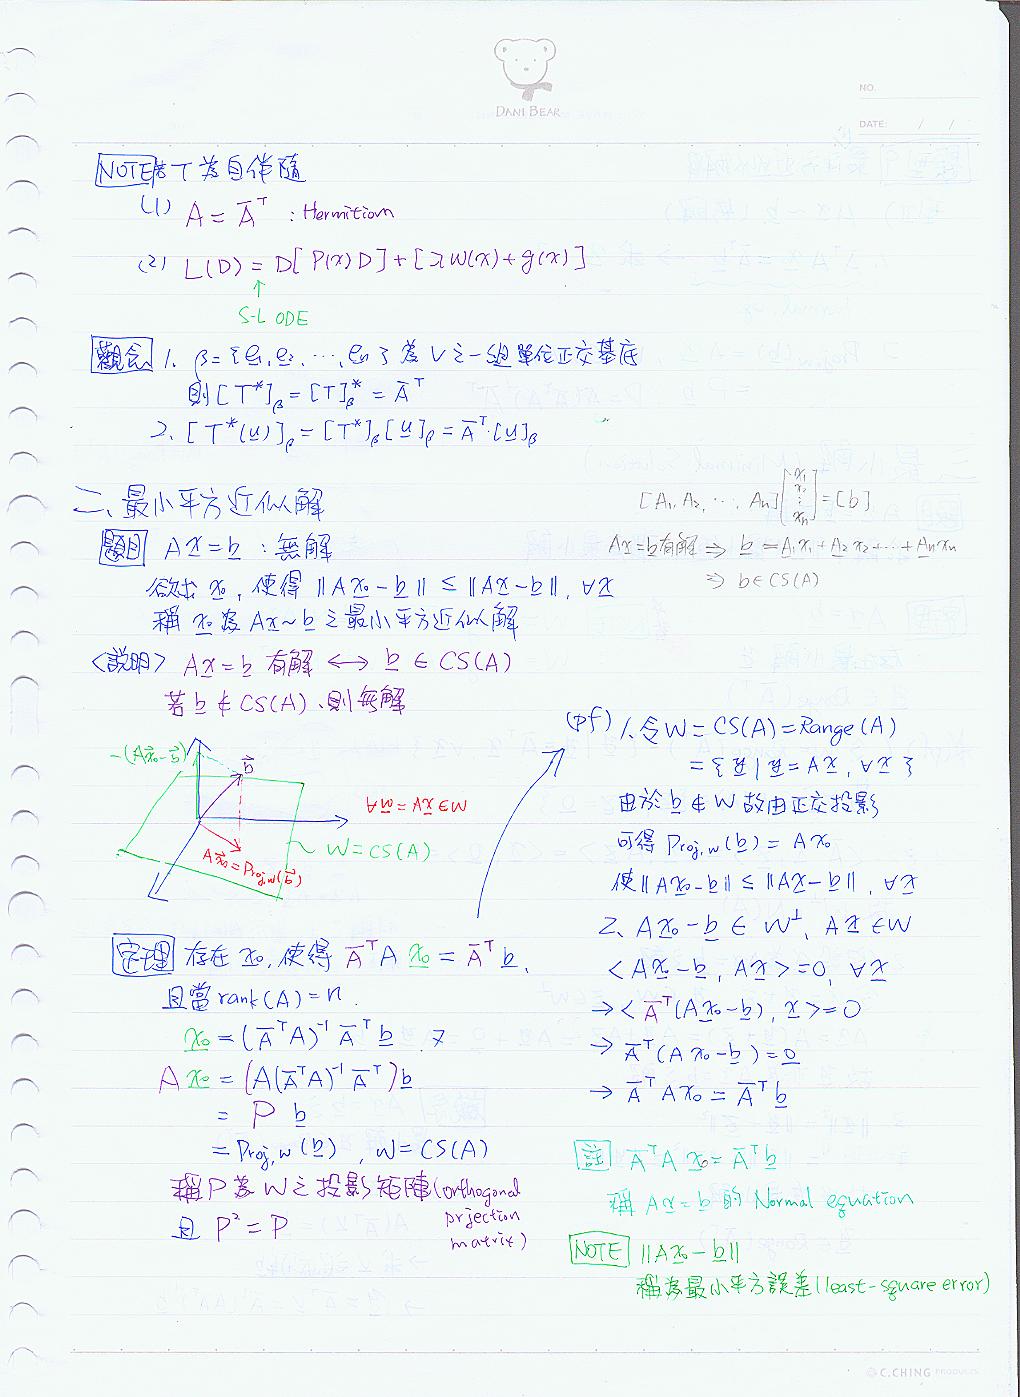 DANI BEAR
NO.
DATE: / /
NOTE 若 T 為自伴隨
(1) A = A̅ᵀ : Hermitian
(2) L(D) = D[P(x)D] + [λW(x) + g(x)]
↑
S-L ODE
觀念 1. β = {e₁, e₂, ⋯, eₙ} 為 V 之一組單位正交基底
則 [T*]β = [T]β* = A̅ᵀ
2. [T*(u)]β = [T*]β[u]β = A̅ᵀ·[u]β
二、最小平方近似解
[A₁, A₂, ⋯, Aₙ][x₁ x₂ ⋮ xₙ] = [b]
題目 Ax = b : 無解
Ax = b 有解 ⇒ b = A₁x₁ + A₂x₂ + ⋯ + Aₙxₙ
⇒ b ∈ CS(A)
欲求 x₀, 使得 ‖Ax₀ - b‖ ≤ ‖Ax - b‖, ∀x
稱 x₀ 為 Ax ~ b 之最小平方近似解
<說明> Ax = b 有解 ↔ b ∈ CS(A)
若 b ∉ CS(A), 則無解
-(Ax⃗₀ - b⃗)
b⃗
∀w = Ax ∈ W
W = CS(A)
Ax⃗₀ = Proj,w(b⃗)
(pf) 1. 令 W = CS(A) = Range(A)
= {z | z = Ax, ∀x}
由於 b ∉ W 故由正交投影
可得 Proj,w(b) = Ax₀
使 ‖Ax₀ - b‖ ≤ ‖Ax - b‖, ∀x
2. Ax₀ - b ∈ W⊥, Ax ∈ W
<Ax₀ - b, Ax> = 0, ∀x
→ <A̅ᵀ(Ax₀ - b), x> = 0
→ A̅ᵀ(Ax₀ - b) = 0
→ A̅ᵀAx₀ = A̅ᵀb
定理 存在 x₀, 使得 A̅ᵀA x₀ = A̅ᵀ b,
且當 rank(A) = n.
x₀ = (A̅ᵀA)⁻¹ A̅ᵀ b
A x₀ = (A(A̅ᵀA)⁻¹ A̅ᵀ) b
= P b
= Proj,w(b), W = CS(A)
稱 P 為 W 之投影矩陣 (orthogonal
prjection
matrix)
且 P² = P
註 A̅ᵀA x₀ = A̅ᵀ b
稱 Ax = b 的 Normal equation
NOTE ‖Ax₀ - b‖
稱為最小平方誤差 (least-square error)
C.CHING PRODUCTS